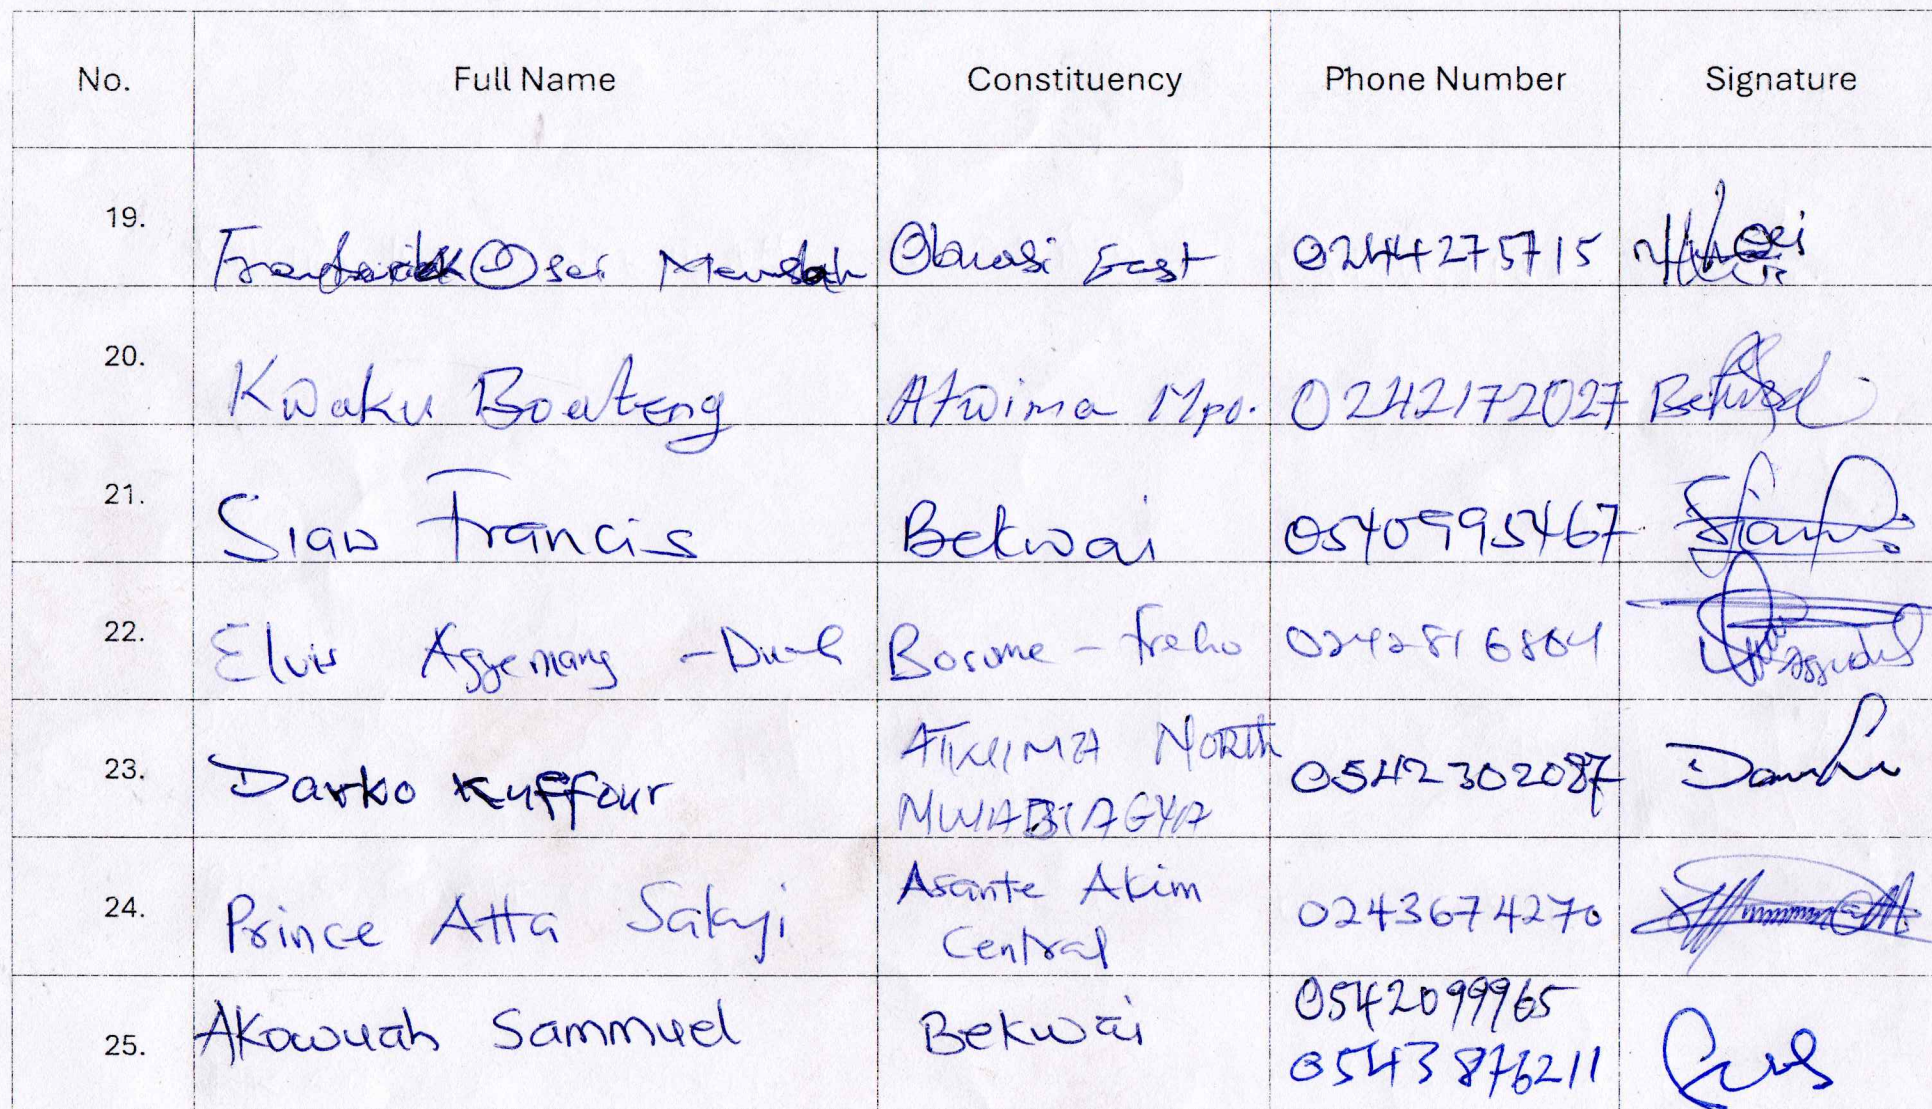 No. Full Name Constituency Phone Number Signature
19. Frederick Osei Mensah Obuasi East 0244275715
20. Kwaku Boateng Atwima Mpo. 0242172027
21. Siaw Francis Bekwai 0540995467
22. Elvis Agyemang - Duah Bosome - Freho 0242816804
23. Darko Kuffour ATWIMA NORTH 0542302087
MWABIAGYA
24. Prince Atta Sakyi Asante Akim 0243674270
Central
25. Akowuah Sammuel Bekwai 0542099965
0543876211